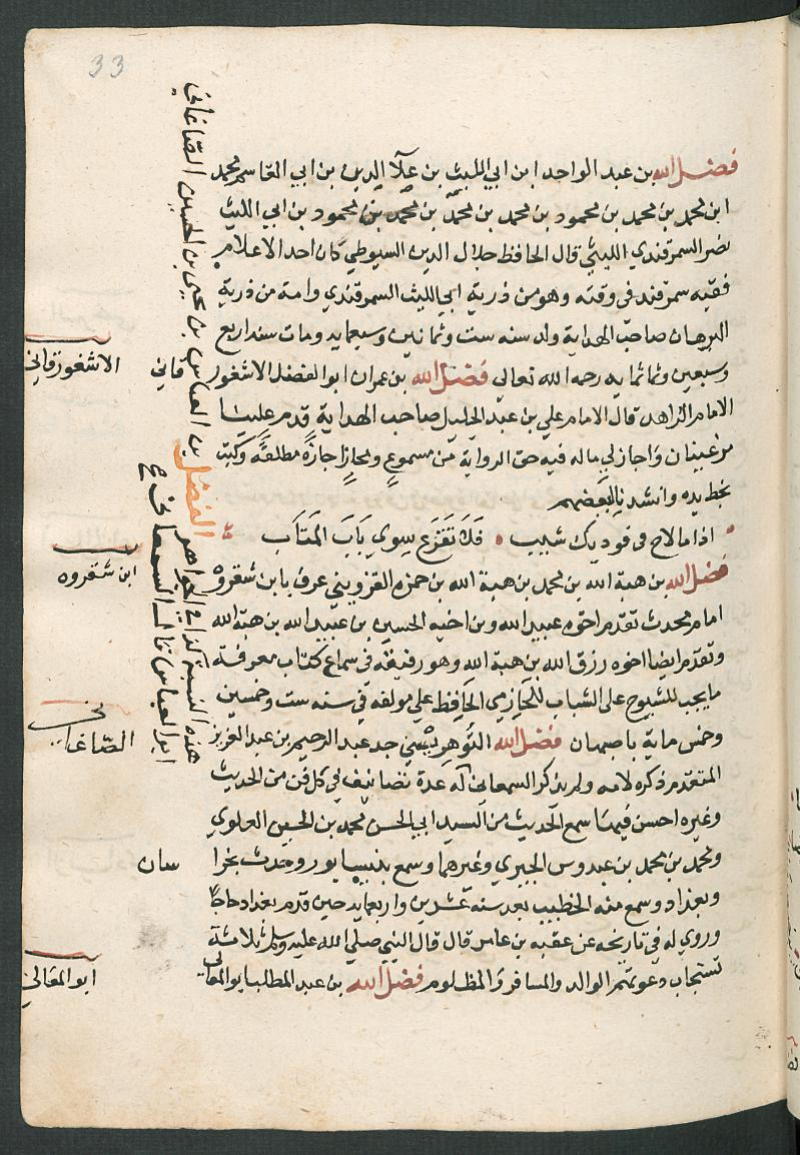 33
فضل الله بن عبد الواحد ابن ابي الليث بن علآ الدين بن ابي القاسم محمد
ابن محمد بن محمد بن محمود بن محمد بن محمد بن محمد بن محمود بن ابي الليث
نصر السمرقندي الليثي قال الحافظ جلال الدين السيوطي كان احد الاعلام
فقيه سمرقند في وقته وهو من ذرية ابي الليث السمرقندي وامه من ذرية
البرهان صاحب الهداية ولد سنه ست وثمانين وسبعمايه ومات سنه اربع
وسبعين وثمانمايه رحمه الله تعالى فضل الله بن عمران ابو الفضل الاشغور قاني
الاشغورقاني
الامام الزاهد قال الامام علي بن عبد الجليل صاحب الهداية قدم علينا
مرغينان واجاز لي ماله فيه حق الرواية من مسموع ومجاز اجازة مطلقة وكتب
بخط يده وانشدنا لبعضهم
اذا ما لاح في فوديك شيب فلا تفزع سوى باب المتاب
فضل الله بن هبة الله بن محمد بن هبة الله بن حمزه القزويني عرف بابن شقروه
ابن شقروه
امام محدث تقدم اخوه عبيد الله وبن اخيه الحسين بن عبيد الله بن هبة الله
وتقدم ايضا اخوه رزق الله بن هبة الله وهو رفيقه في سماع كتاب معرفة
ما يجب للشيوخ على الشباب للحازمي الحافظ على مولفه في سنه ست وخمسين
وخمس ماية باصبهان فضل الله بن عبد العزيز
الصاغاني
المتقدم ذكره لامه ولم يذكر السمعاني له عدة تصانيف في كل فن من الحديث
وغيره احسن فيها سمع الحديث من السيد ابي الحسن محمد بن الحسين العلوي
ومحمد بن محمد بن عبدوس الحيري وغيرهما وسمع بنيسابور وحدث بخرا
سان
وبغداد وسمع منه الخطيب بعد سنه عشرين واربعمايه حين قدم بغداد حاجا
وروى له في تاريخه عن عقبه بن عامر قال قال النبي صلى الله عليه وسلم ثلاثة
تستجاب دعوتهم الوالد والمسافر والمظلوم فضل الله بن عبد المطلب ابو المعالي
ابو المعالي
الفضل بن العباس بن يحيى بن الحسين الصاغاني
هذه النسبة كذا في الجواهر
ابو العباس قال السمعاني